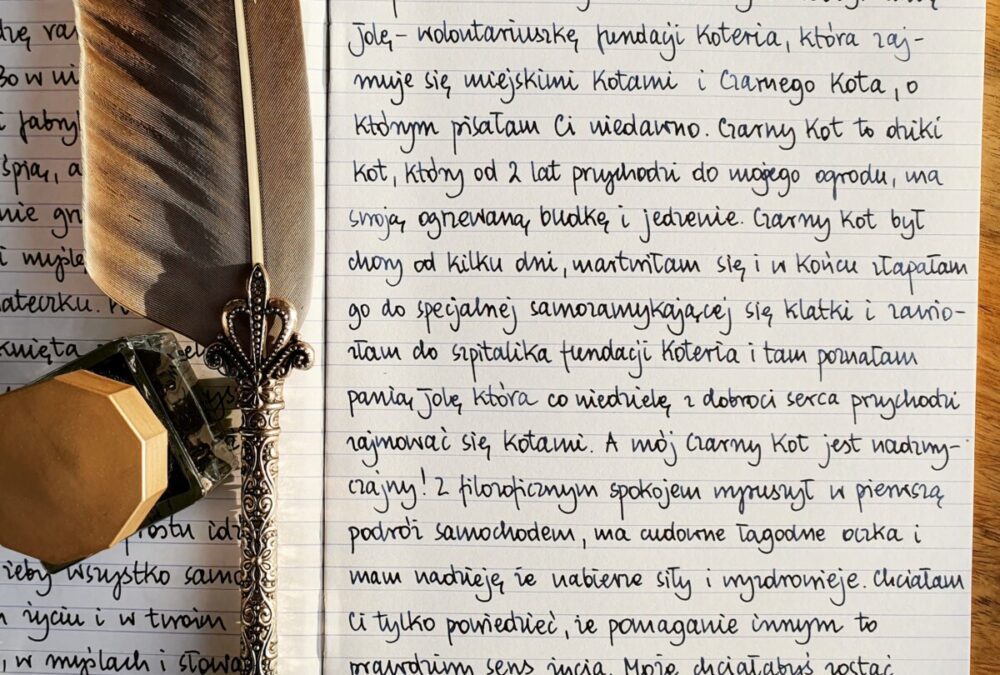 zę
Bo w
i fabry
śpią, a
nie gr
i myśle
ateczku.
knięta
prostu idz
żeby wszystko samo
życiu i w twoim
, w myślach i słowa
Jolę – wolontariuszkę fundacji Koteria, która zaj-
muje się miejskimi kotami i Czarnego Kota, o
którym pisałam Ci niedawno. Czarny Kot to dziki
kot, który od 2 lat przychodzi do mojego ogrodu, ma
swoją ogrzewaną budkę i jedzenie. Czarny Kot był
chory od kilku dni, martwiłam się i w końcu złapałam
go do specjalnej samozamykającej się klatki i zawio-
złam do szpitalika fundacji Koteria i tam poznałam
panią Jolę która co niedzielę z dobroci serca przychodzi
zajmować się kotami. A mój Czarny Kot jest nadzwy-
czajny! Z filozoficznym spokojem wyruszył w pierwszą
podróż samochodem, ma cudowne łagodne oczka i
mam nadzieję że nabierze siły i wyzdrowieje. Chciałam
Ci tylko powiedzieć, że pomaganie innym to
prawdziwy sens życia. Może chciałabyś zostać